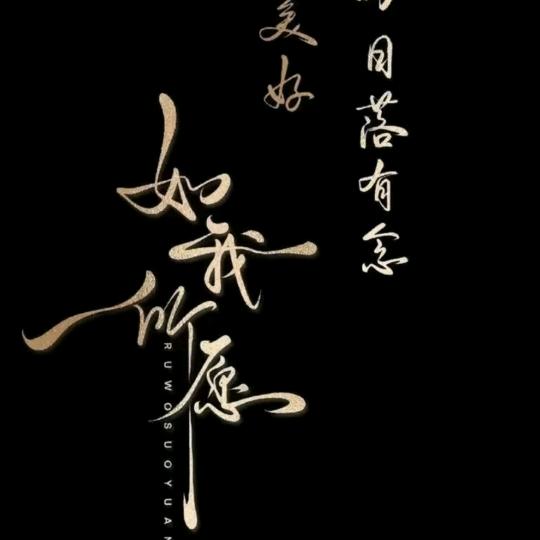 日落有念
美好
如我所愿
RUWOSUOYUAN